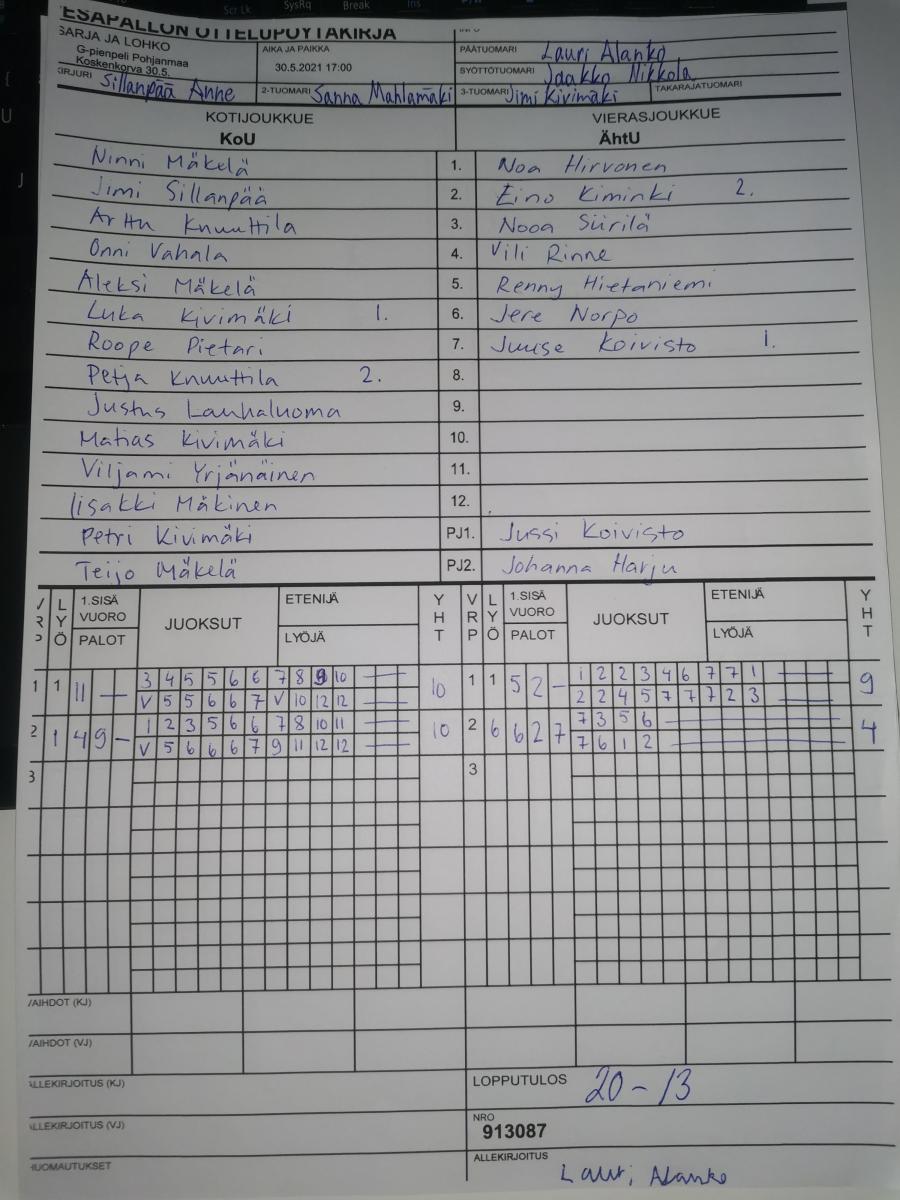 ESÄPALLON OTTELUPÖYTÄKIRJA
SARJA JA LOHKO
G-pienpeli Pohjanmaa
Koskenkorva 30.5.
AIKA JA PAIKKA
30.5.2021 17:00
PÄÄTUOMARI Lauri Alanko
SYÖTTÖTUOMARI Jaakko Nikkola
KIRJURI Sillanpää Anne
2-TUOMARI Sanna Mahlamäki
3-TUOMARI Jimi Kivimäki
TAKARAJATUOMARI
KOTIJOUKKUE VIERASJOUKKUE
KoU ÄhtU
Ninni Mäkelä 1. Noa Hirvonen
Jimi Sillanpää 2. Eino Kiminki 2.
Arttu Knuuttila 3. Nooa Siirilä
Onni Vahala 4. Vili Rinne
Aleksi Mäkelä 5. Renny Hietaniemi
Luka Kivimäki 1. 6. Jere Norpo
Roope Pietari 7. Juuse Koivisto 1.
Petja Knuuttila 2. 8.
Justus Lauhaluoma 9.
Matias Kivimäki 10.
Viljami Yrjänäinen 11.
Iisakki Mäkinen 12.
Petri Kivimäki PJ1. Jussi Koivisto
Teijo Mäkelä PJ2. Johanna Harju
VRP LYÖ 1.SISÄ VUORO PALOT JUOKSUT ETENIJÄ LYÖJÄ YHT VRP LYÖ 1.SISÄ VUORO PALOT JUOKSUT ETENIJÄ LYÖJÄ YHT
1 1 11 — 3 4 5 5 6 6 7 8 9 10 — 10 1 1 5 2 - 1 2 2 3 4 6 7 7 1 — 9
V 5 5 6 6 7 V 10 12 12 — 2 2 4 5 7 7 7 2 3 —
2 1 4 9 - 1 2 3 5 6 6 7 8 10 11 — 10 2 6 6 2 7 7 3 5 6 — 4
V 5 6 6 6 7 9 11 12 12 — 7 6 1 2 —
3 3
VAIHDOT (KJ)
VAIHDOT (VJ)
ALLEKIRJOITUS (KJ)
LOPPUTULOS 20-13
ALLEKIRJOITUS (VJ)
NRO
913087
HUOMAUTUKSET
ALLEKIRJOITUS
Lauri Alanko